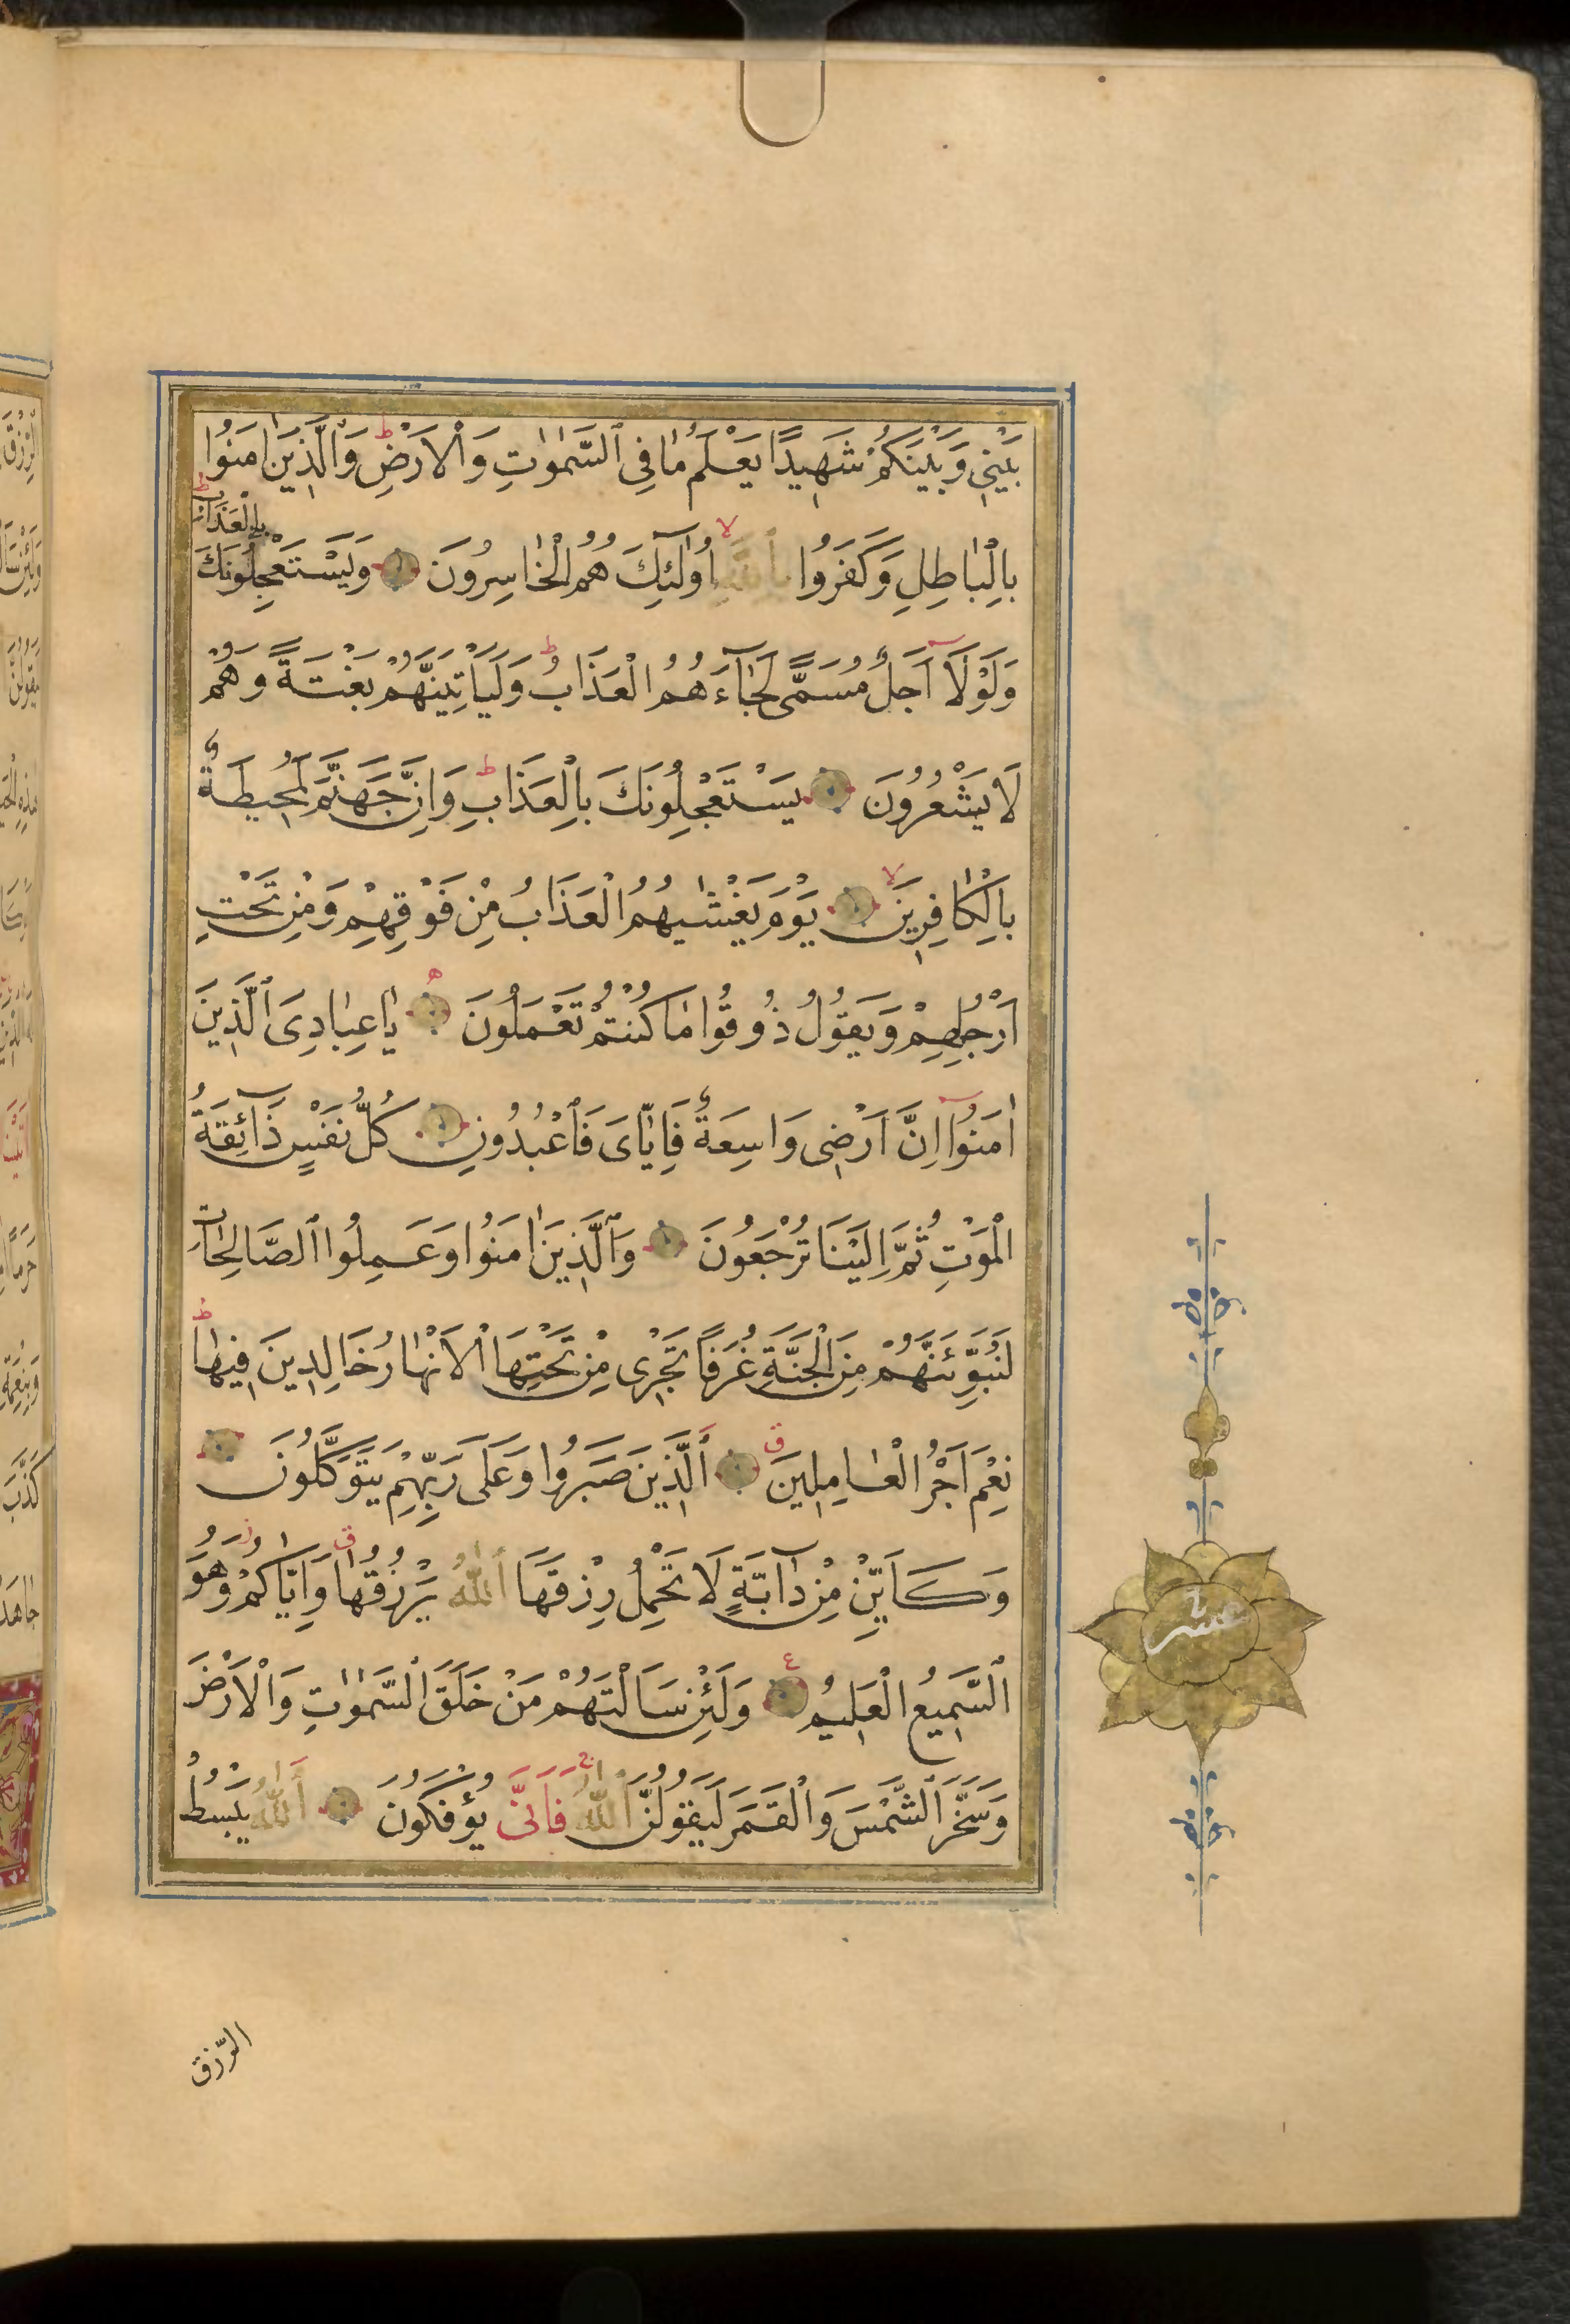 بَيْنِي وَبَيْنَكُمْ شَهِيدًا يَعْلَمُ مَا فِي ٱلسَّمٰوَاتِ وَالْاَرْضِ ط وَالَّذِينَ اٰمَنُوا
بِالْبَاطِلِ وَكَفَرُوا بِاللّٰهِ لا اُولٰٓئِكَ هُمُ الْخَاسِرُونَ وَيَسْتَعْجِلُونَكَ بِالْعَذَابِ ط
وَلَوْلَآ اَجَلٌ مُسَمًّى لَجَآءَهُمُ الْعَذَابُ ط وَلَيَاْتِيَنَّهُمْ بَغْتَةً وَهُمْ
لَا يَشْعُرُونَ يَسْتَعْجِلُونَكَ بِالْعَذَابِ ط وَاِنَّ جَهَنَّمَ لَمُحِيطَةٌ
بِالْكَافِرِينَ لا يَوْمَ يَغْشٰيهُمُ الْعَذَابُ مِنْ فَوْقِهِمْ وَمِنْ تَحْتِ
اَرْجُلِهِمْ وَيَقُولُ ذُوقُوا مَا كُنْتُمْ تَعْمَلُونَ ه يَا عِبَادِيَ ٱلَّذِينَ
اٰمَنُوٓا اِنَّ اَرْضِي وَاسِعَةٌ فَاِيَّايَ فَاعْبُدُونِ كُلُّ نَفْسٍ ذَآئِقَةُ
الْمَوْتِ ثُمَّ اِلَيْنَا تُرْجَعُونَ وَٱلَّذِينَ اٰمَنُوا وَعَمِلُوا ٱلصَّالِحَاتِ
لَنُبَوِّئَنَّهُمْ مِنَ الْجَنَّةِ غُرَفًا تَجْرِي مِنْ تَحْتِهَا الْاَنْهَارُ خَالِدِينَ فِيهَا ط
نِعْمَ اَجْرُ الْعَامِلِينَ ق اَلَّذِينَ صَبَرُوا وَعَلَى رَبِّهِمْ يَتَوَكَّلُونَ
وَكَاَيِّنْ مِنْ دَآبَّةٍ لَا تَحْمِلُ رِزْقَهَا اَللّٰهُ يَرْزُقُهَا وَاِيَّاكُمْ وَهُوَ
ٱلسَّمِيعُ الْعَلِيمُ ع وَلَئِنْ سَاَلْتَهُمْ مَنْ خَلَقَ ٱلسَّمٰوَاتِ وَالْاَرْضَ
وَسَخَّرَ ٱلشَّمْسَ وَالْقَمَرَ لَيَقُولُنَّ ٱللّٰهُ ج فَاَنَّى يُؤْفَكُونَ اَللّٰهُ يَبْسُطُ
عشر
الرّزق